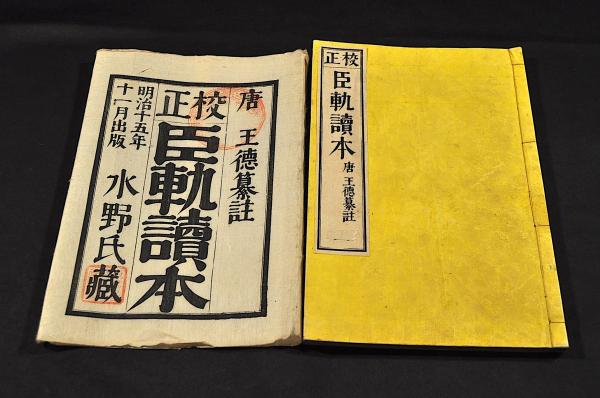 唐 王德纂註
校正
臣軌讀本
明治十五年
十一月出版
水野氏藏
校正
臣軌讀本
唐 王德纂註